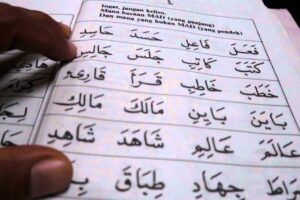 Ingat, jangan keliru.
Mana bacaan MAD (yang panjang)
Dan mana yang bukan MAD (yang pendek)
فَعَلَ فَاعِلِ حَسَدَ حَاسِدِ
كَتَبَ كَاتِبِ جَلَسَ جَالِسِ
خَطَبَ خَاطِبِ قَرَأَ قَارِئِ
بَايَنَ بَايِنِ مَالَكَ مَالِكِ
عَالَمَ عَالِمِ شَاهَدَ شَاهِدِ
جِهَادِ طِبَاقَ